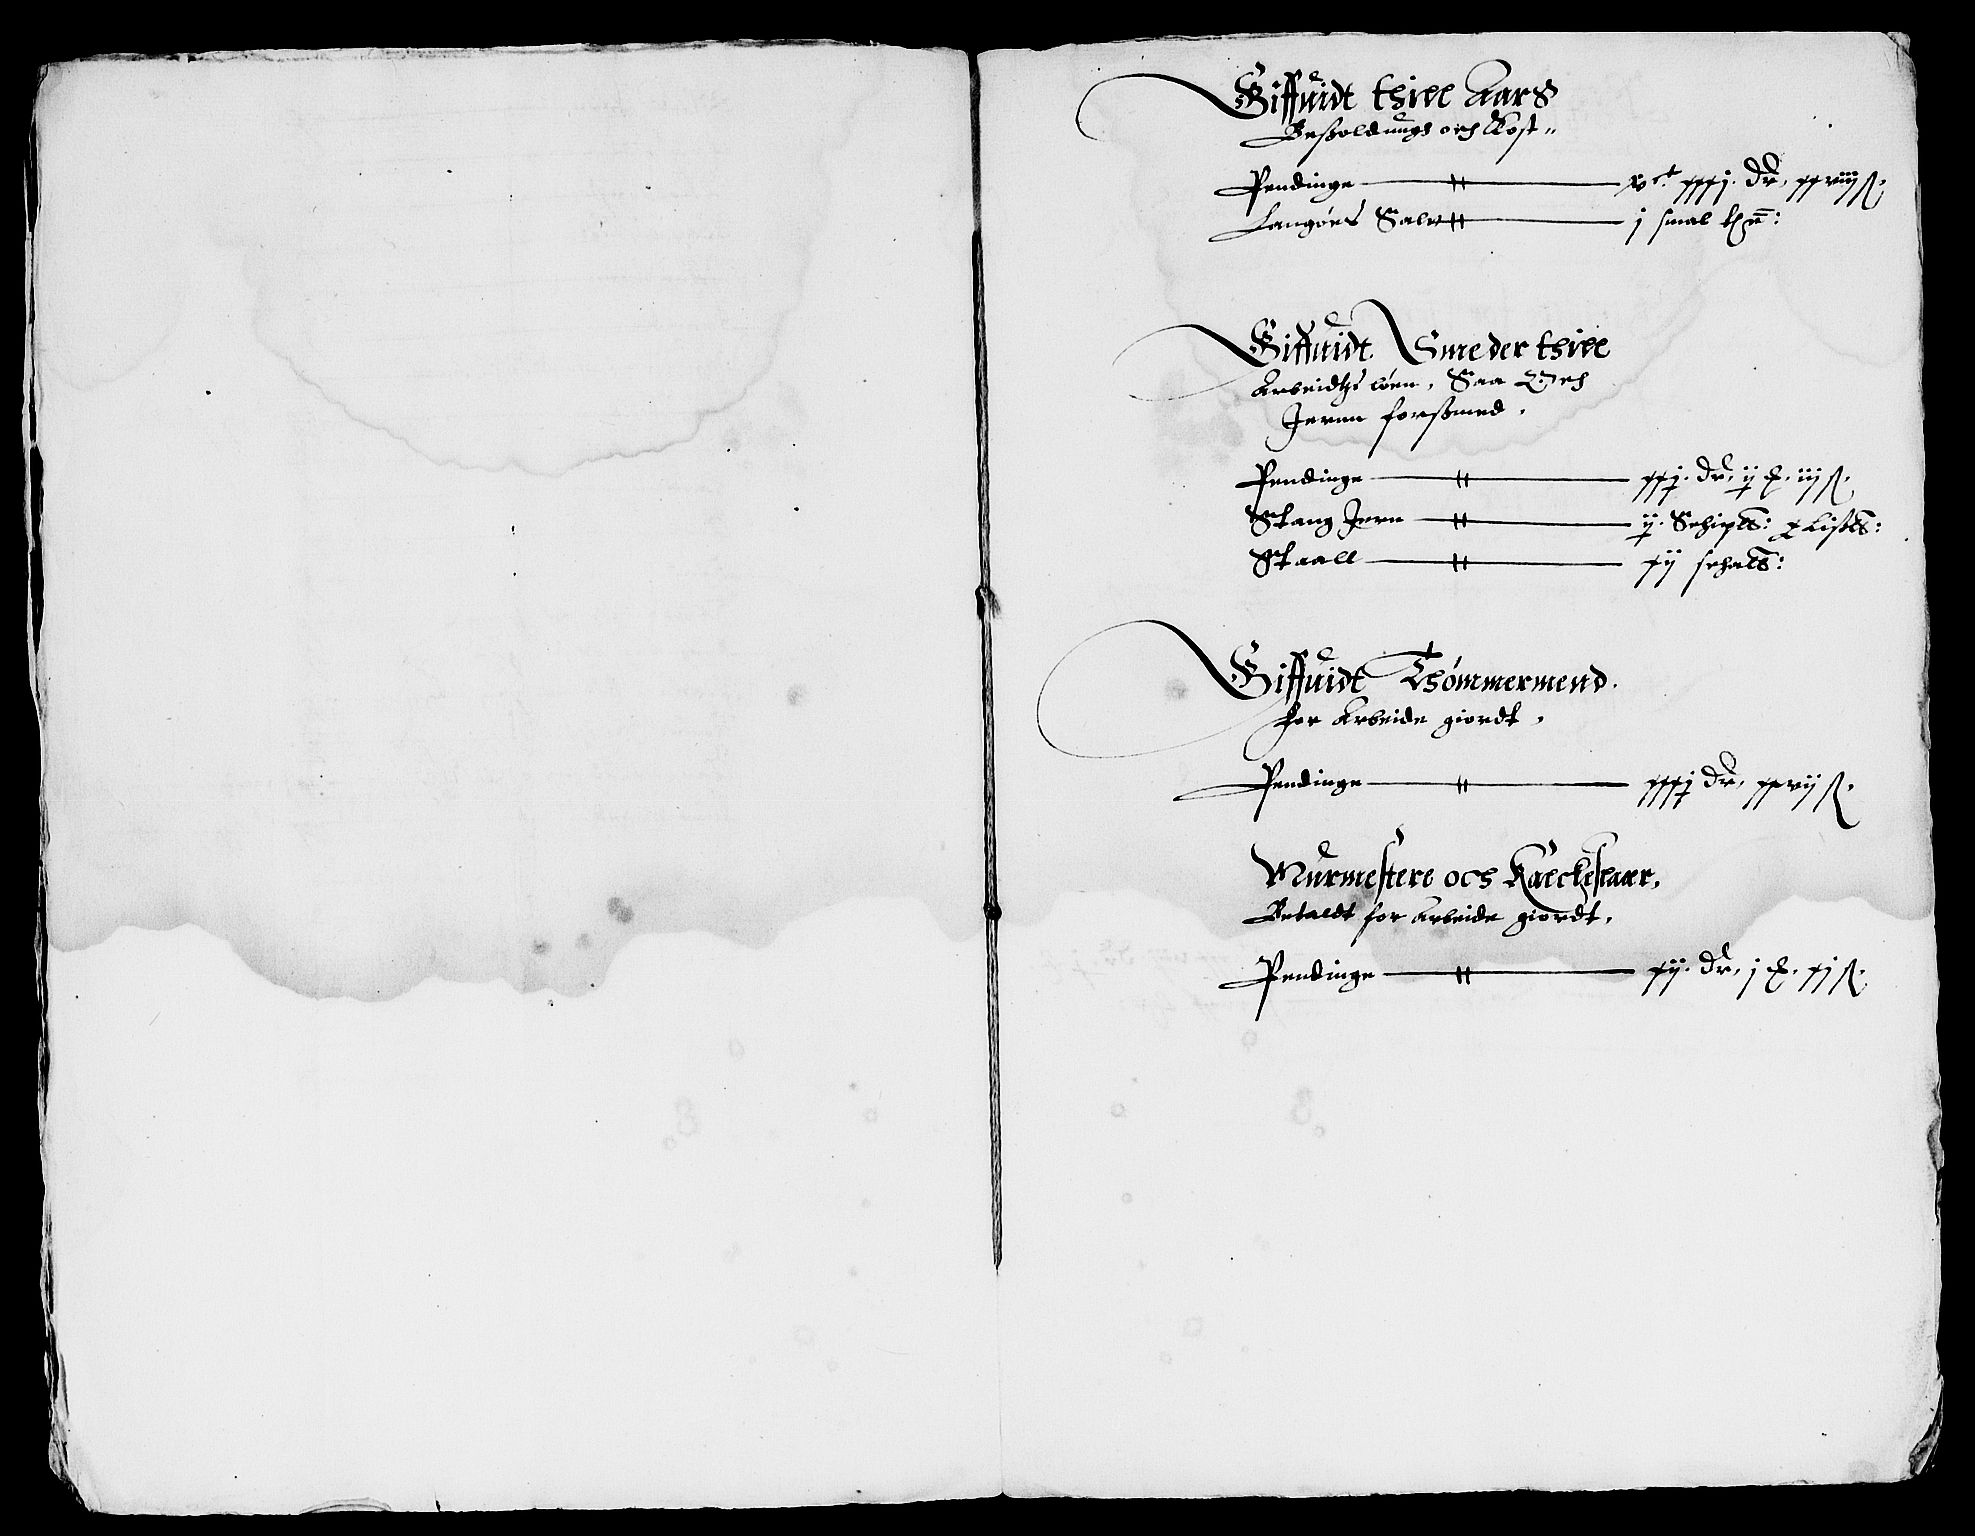 Giffuidt thill Aars
Besoldungh och Kost
Pendinge — vᶜ xxxj dr, xxviij ß.
Langøes Salt — j smal tn̄:
Giffuidt Smeder thill
Arbeidtzløen, Saa Och
Jernn forsmed.
Pendinge — xxj dr, ij ₰. iij ß.
Stang Jern — ij Schip℔: x Lis℔:
Staall — xij schal℔:
Giffuidt Thømmermend
for Arbeide giordt,
Pendinge — xxxj dr, xxvij ß.
Murmestere och Kalckslaar,
Betaldt for Arbeide giordt,
Pendinge — xij dr, j ₰. xj ß.